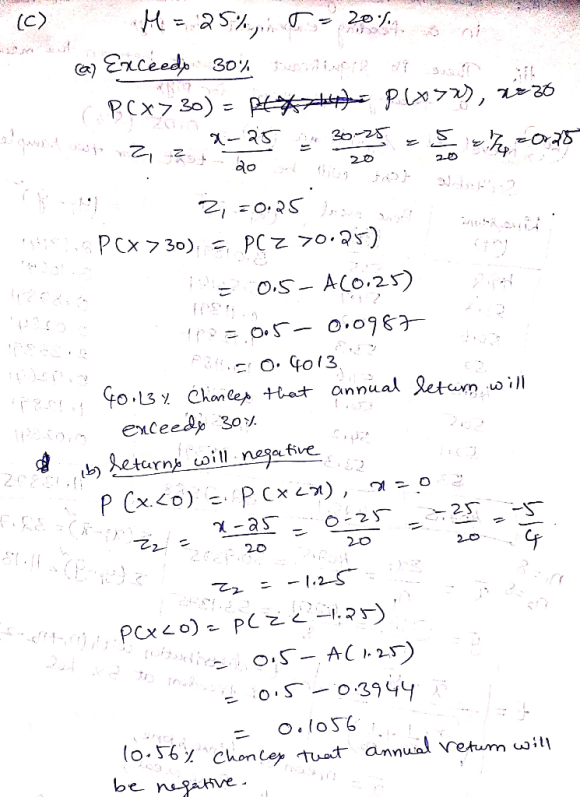 (C) μ = 25%, σ = 20%
(a) Exceeds 30%
P(X>30) = P(X>x), x=30
Z₁ = x-25/20 = 30-25/20 = 5/20 = 1/4 = 0.25
Z₁ = 0.25
P(X>30) = P(Z>0.25)
= 0.5 - A(0.25)
= 0.5 - 0.0987
= 0.4013
40.13% Chances that annual return will
exceeds 30%.
(b) Returns will negative
P(X<0) = P(X<x), x=0
Z₂ = x-25/20 = 0-25/20 = -25/20 = -5/4
Z₂ = -1.25
P(X<0) = P(Z<-1.25)
= 0.5 - A(1.25)
= 0.5 - 0.3944
= 0.1056
10.56% Chances that annual return will
be negative.